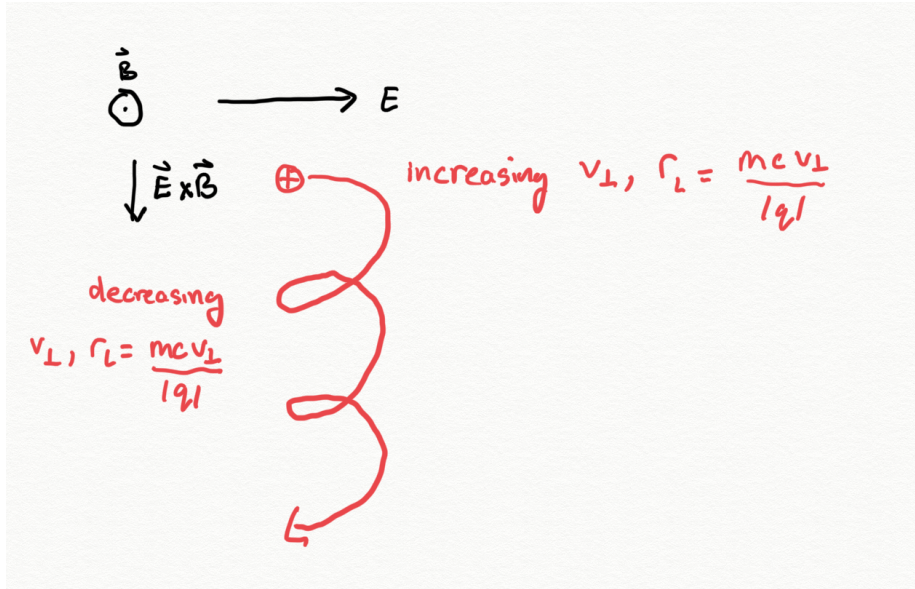 B⃗
⊙ → E
↓ E⃗ x B⃗
⊕ increasing v⊥, r_L = mcv⊥ / |q|
decreasing
v⊥, r_L = mcv⊥ / |q|